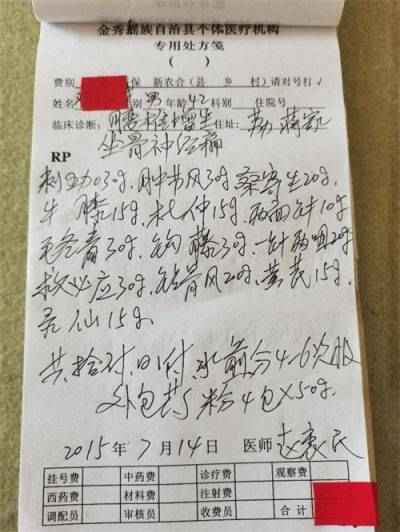 金秀瑶族自治县个体医疗机构
专用处方笺
(    )
费别 保 新农合(县 乡 村)请对号打√
姓名 男 年龄 42 科别 住院号
临床诊断: 腰椎增生 住址:
坐骨神经痛
RP
30g. 肿节风30g. 桑寄生20g.
牛膝15g. 杜仲15g. 两面针10g
30g. 钩藤30g. 20g
救必应30g. 钻骨风20g. 黄芪15g.
灵仙15g.
共拾付, 日1付 水煎分4-6次服
外包药粉4包×50g.
2015年7月14日 医师
挂号费 中药费 诊疗费 观察费
西药费 材料费 注射费
调配员 审核员 收费员 合计